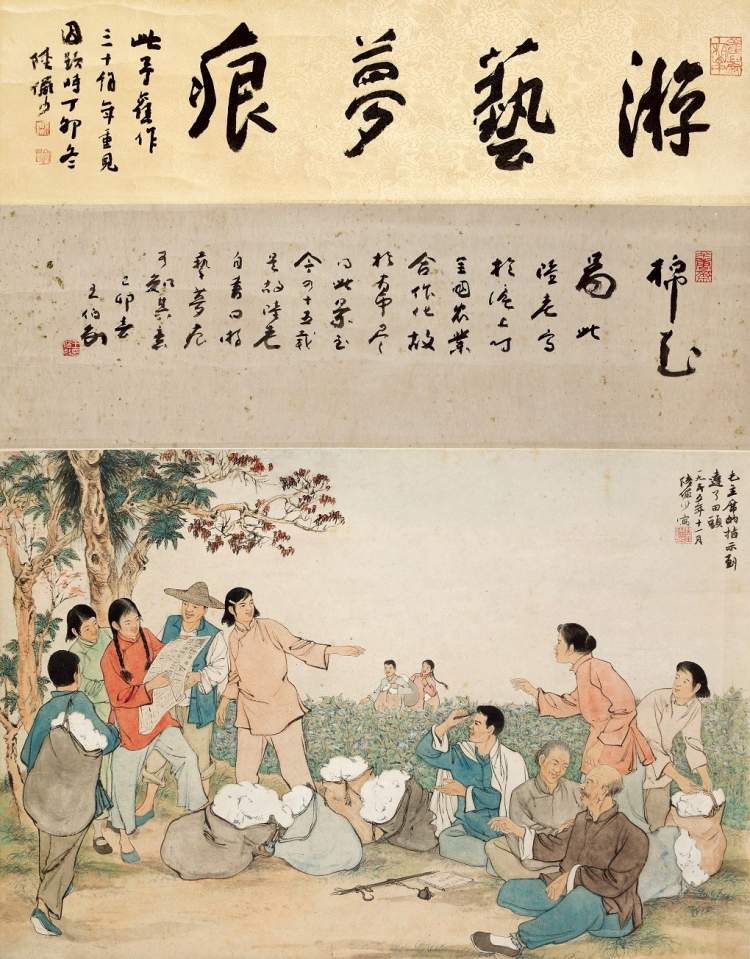 游藝夢痕
此予舊作
三十餘年重見
因題時丁卯冬
陸儼少
棉花
圖此
陸老寫
於滬上時
全國農業
合作化故
於畫尽
得此景至
今四十五載
是故陸老
自書曰游
藝夢痕
可知其意
己卯春
王伯敏
毛主席的指示到
達了田頭
一九五五年十一月
陸儼少寫